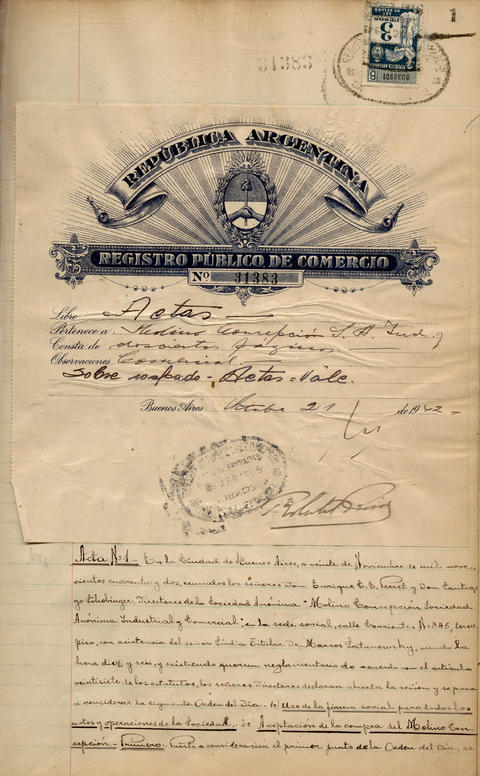 1
3
PESOS
31383
REPÚBLICA ARGENTINA
REGISTRO PÚBLICO DE COMERCIO
Nº 31383
Libro Actas
Pertenece a Molino Concepción S. A. Ind. y
Consta de doscientas páginas
Observaciones Comercial.
Sobre raspado - Actas = Vale.
Buenos Aires Octubre 21 de 1942 =
Acta Nº 1. En la Ciudad de Buenos Aires, a veinte de Noviembre de mil nove-
cientos cuarenta y dos, reunidos los señores Don Enrique C. E. y Don Santia-
go Directores de la Sociedad Anónima "Molino Concepción Sociedad
Anónima Industrial y Comercial" en la sede social, calle Corrientes Nº 345, tercer
piso, con asistencia del señor Síndico Titular Dr. Marcos Satanowsky, siendo la
hora diez y seis, y existiendo quorum reglamentario de acuerdo con el artículo
veintisiete de los estatutos, los señores Directores declaran abierta la sesión y se pasa
a considerar la siguiente Orden del Día: 1o) Uso de la firma social para todos los
actos y operaciones de la Sociedad. 2o) Aceptación de la compra del Molino Con-
cepción. - Primero: Puesto a consideración el primer punto de la Orden del Día, se